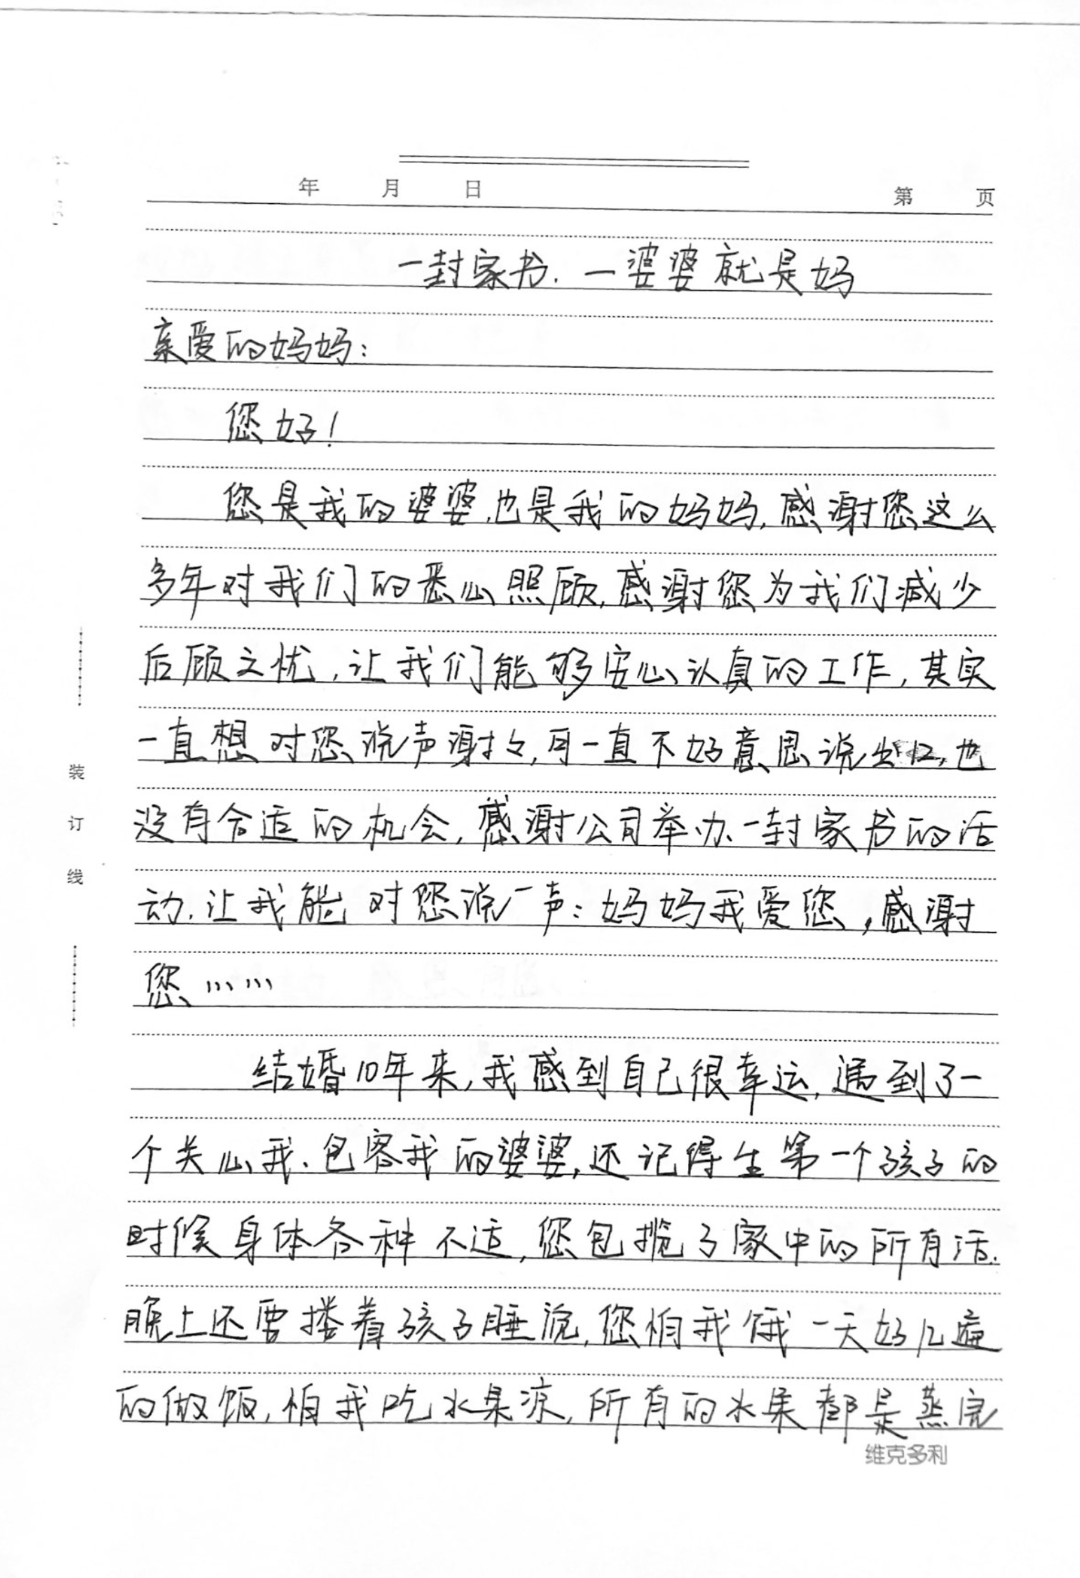 年 月 日 第 页
一封家书. 一婆婆就是妈
亲爱的妈妈:
您好!
您是我的婆婆,也是我的妈妈,感谢您这么
多年对我们的悉心照顾,感谢您为我们减少
后顾之忧,让我们能够安心认真的工作,其实
一直想对您说声谢々,可一直不好意思说出口,也
没有合适的机会,感谢公司举办一封家书的活
动.让我能对您说一声:妈妈我爱您,感谢
您……
结婚10年来,我感到自己很幸运,遇到了一
个关心我、包容我的婆婆,还记得生第一个孩子的
时候身体各种不适,您包揽了家中的所有活.
晚上还要搂着孩子睡说,您怕我饿一天好几遍
的做饭,怕我吃水果凉,所有的水果都是蒸完
装订线
维克多利